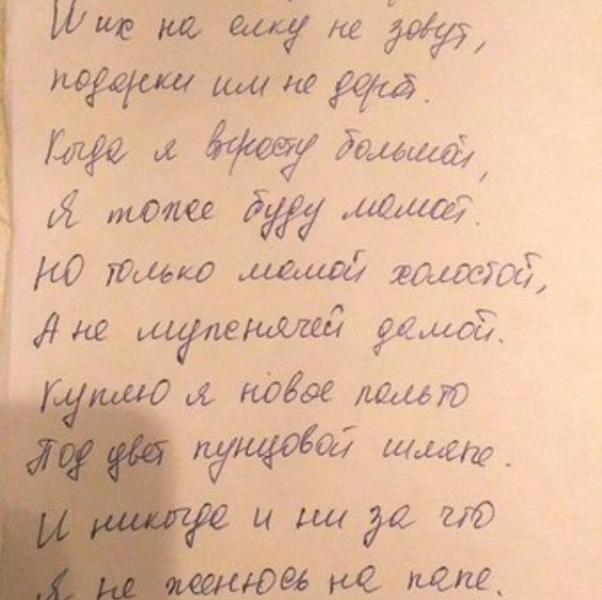 И их на ёлку не зовут,
подарки им не дарят.
Когда я вырасту большой,
Я тоже буду мамой.
Но только мамой холостой,
А не мупенячей дамой.
Куплю я новое пальто
Под цвет пунцовой шляпе.
И никогда и ни за что
Я не женюсь на папе.